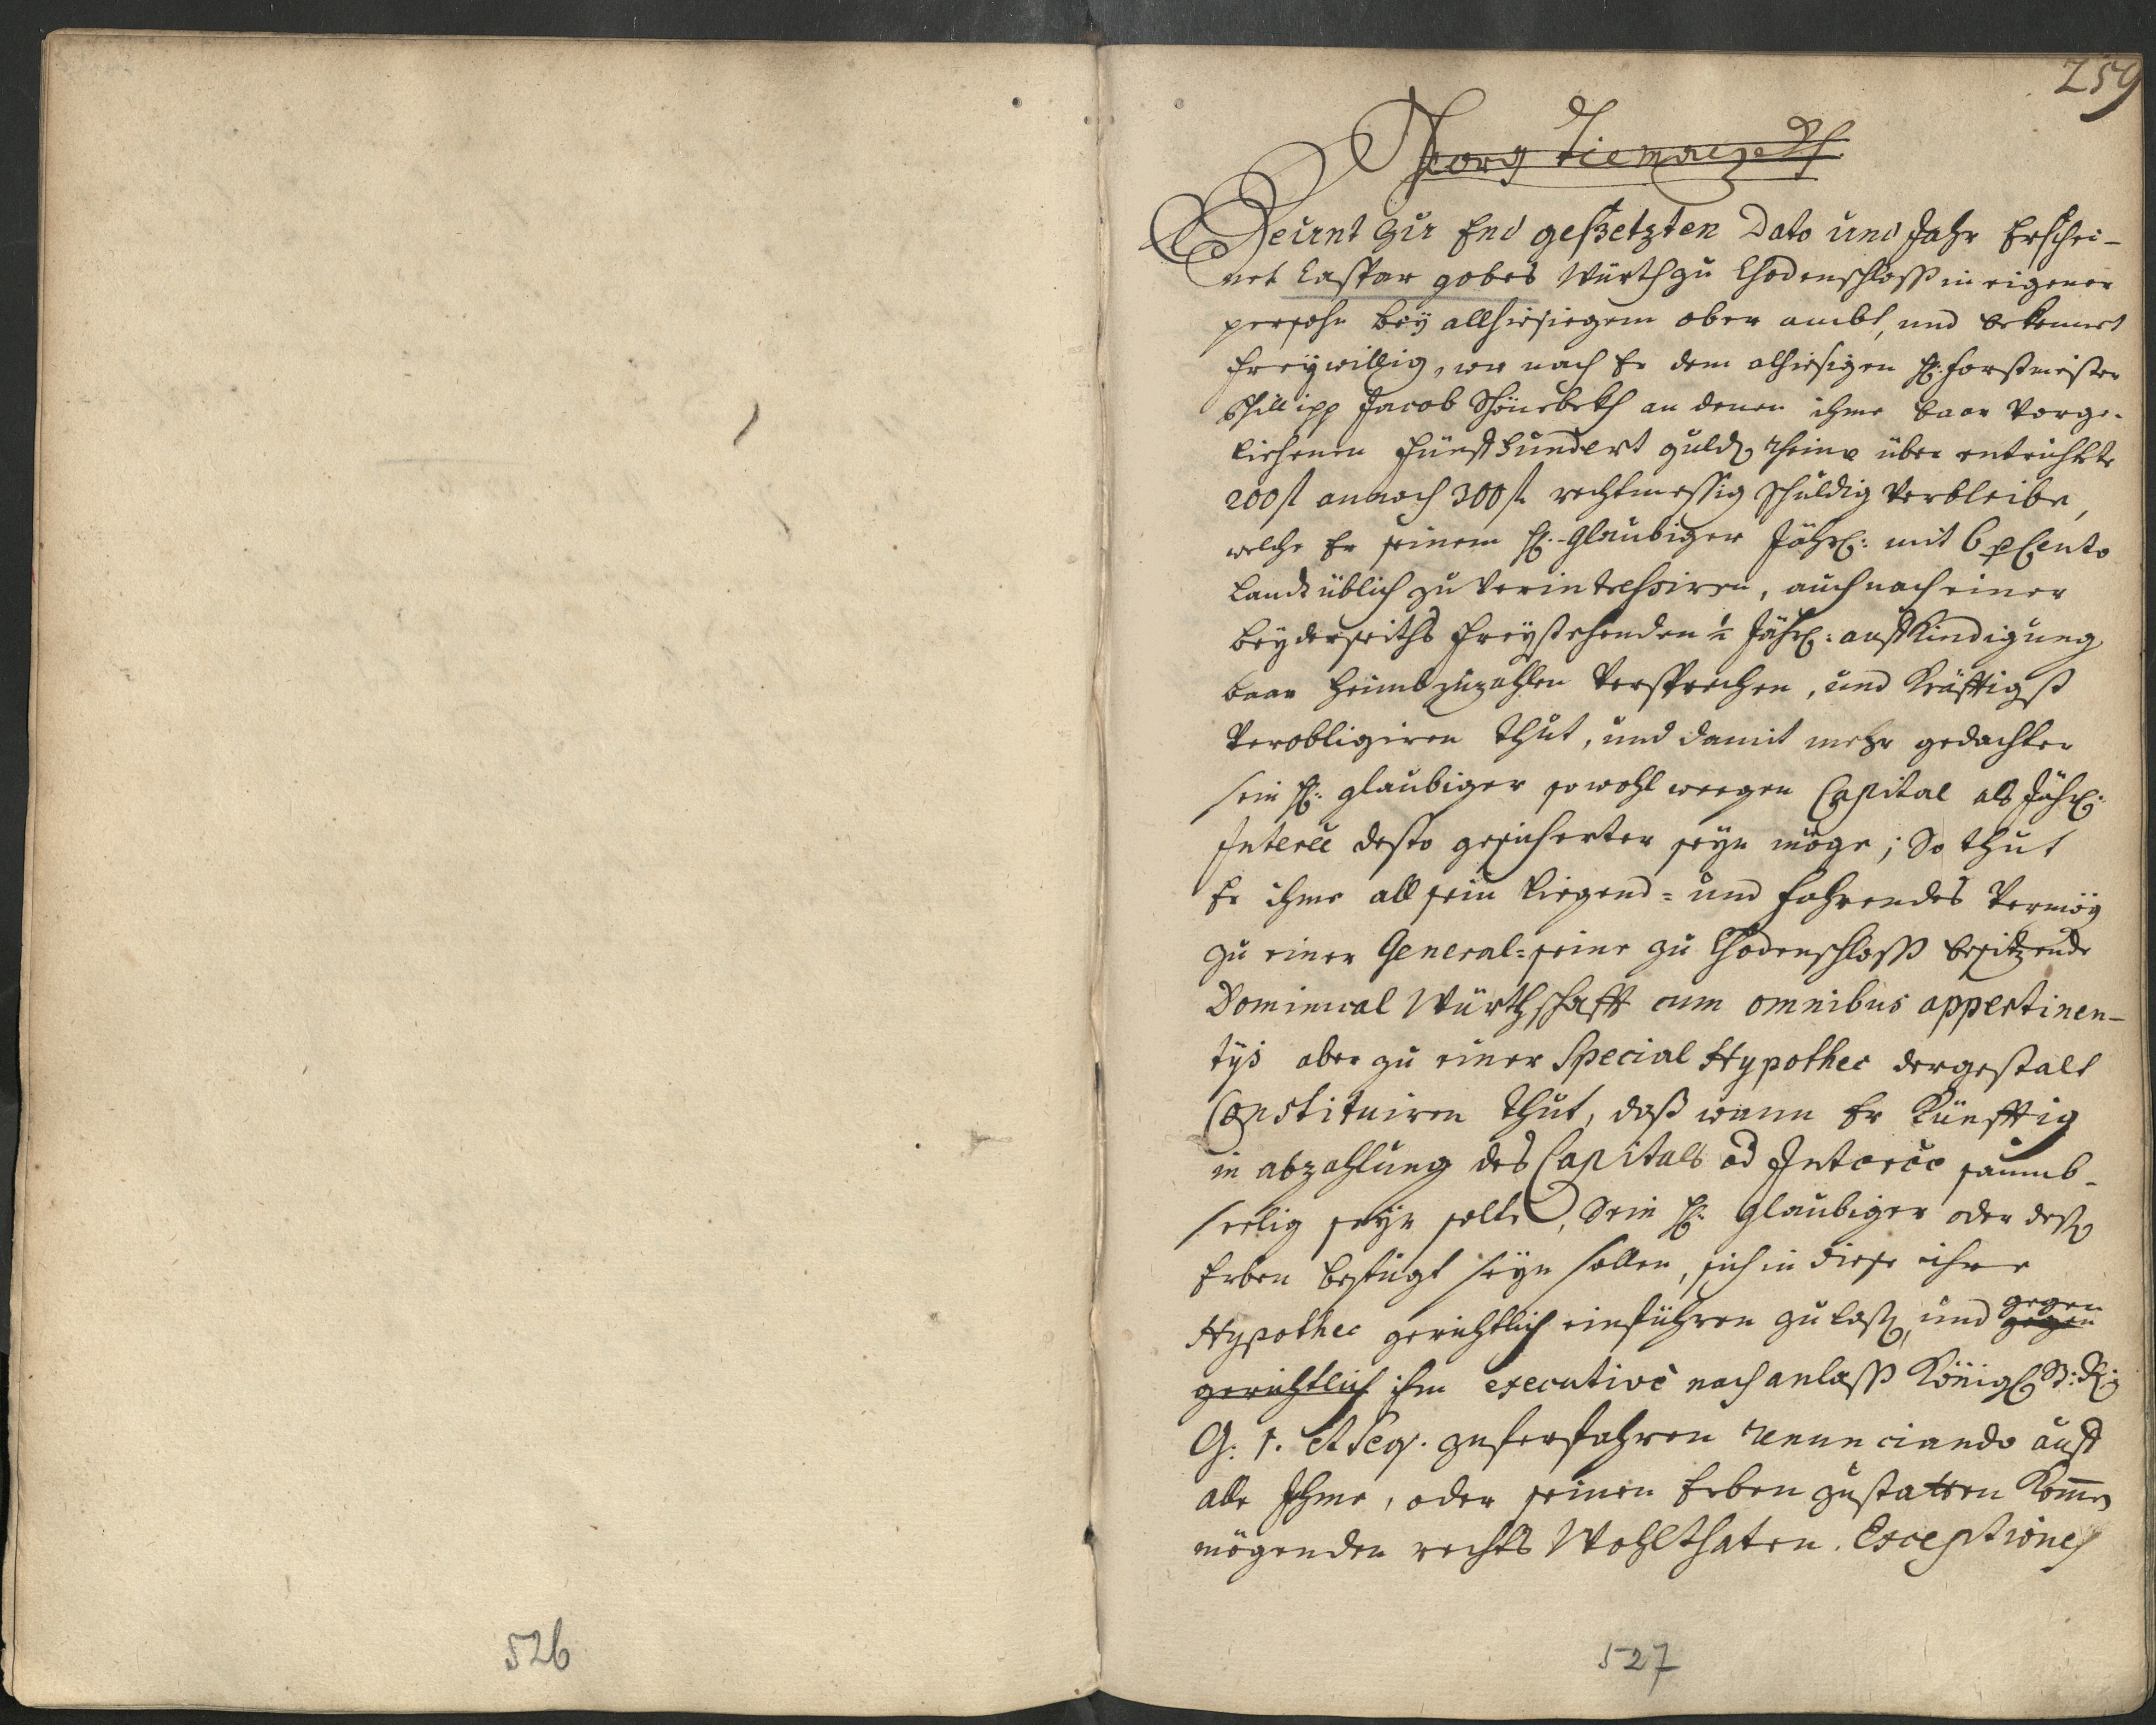 259
Georg
Heünt zu End gesetzten Dato und Jahr Erschei-
net Caspar gobes Würth zu Chodenschloß in eigener
persohn bey allhiesiegem ober ambt, und bekennet
freywillig, wo nach Er dem alhiesigen H: forstmeister
Phillipp Jacob Schönebekh an denen ihme baar vorge-
liehenen fünfhundert guld Rhein über entrichtete
200 fl annoch 300 fl rechtmessig schuldig verbleibe,
welche Er seinem H: Glaubiger Jährl: mit 6 p Cento
Landtüblich zu verinteressiren, auch nach einer
beyderseiths freystehenden ½ Jährl: aufkündigung
baar heimbzuzahlen versprechen, und kräfftigst
verobligiren thut, und damit mehr gedachter
sein H: glaubiger sowohl weegen Capital als Jährl:
Interee desto gesicherter seyn möge; So thut
Er ihme all sein liegend= und fahrendes vermög
zu einer General= seine zu Chodenschloß besitzende
Dominical Würthschafft cum omnibus appertinen-
tys aber zu einer Special Hypothec dergestalt
Constituiren thut, daß wann Er künfftig
in abzahlung des Capitals od Interee saumb-
seelig seyn solte, Sein H: Glaubiger oder deß
Erben befugt seyn sollen, sich in diese ihre
Hypothec gerichtlich einführen zu laß, und gegen
gegen
gerichtlich ihm executive nach anlaß Königl St: R:
G: 1. et seq. zuferfahren renunciando auff
alle Ihme, oder seinen Erben zustatten komen
mögenden rechts Wohlthaten. Exceptiones
526
527